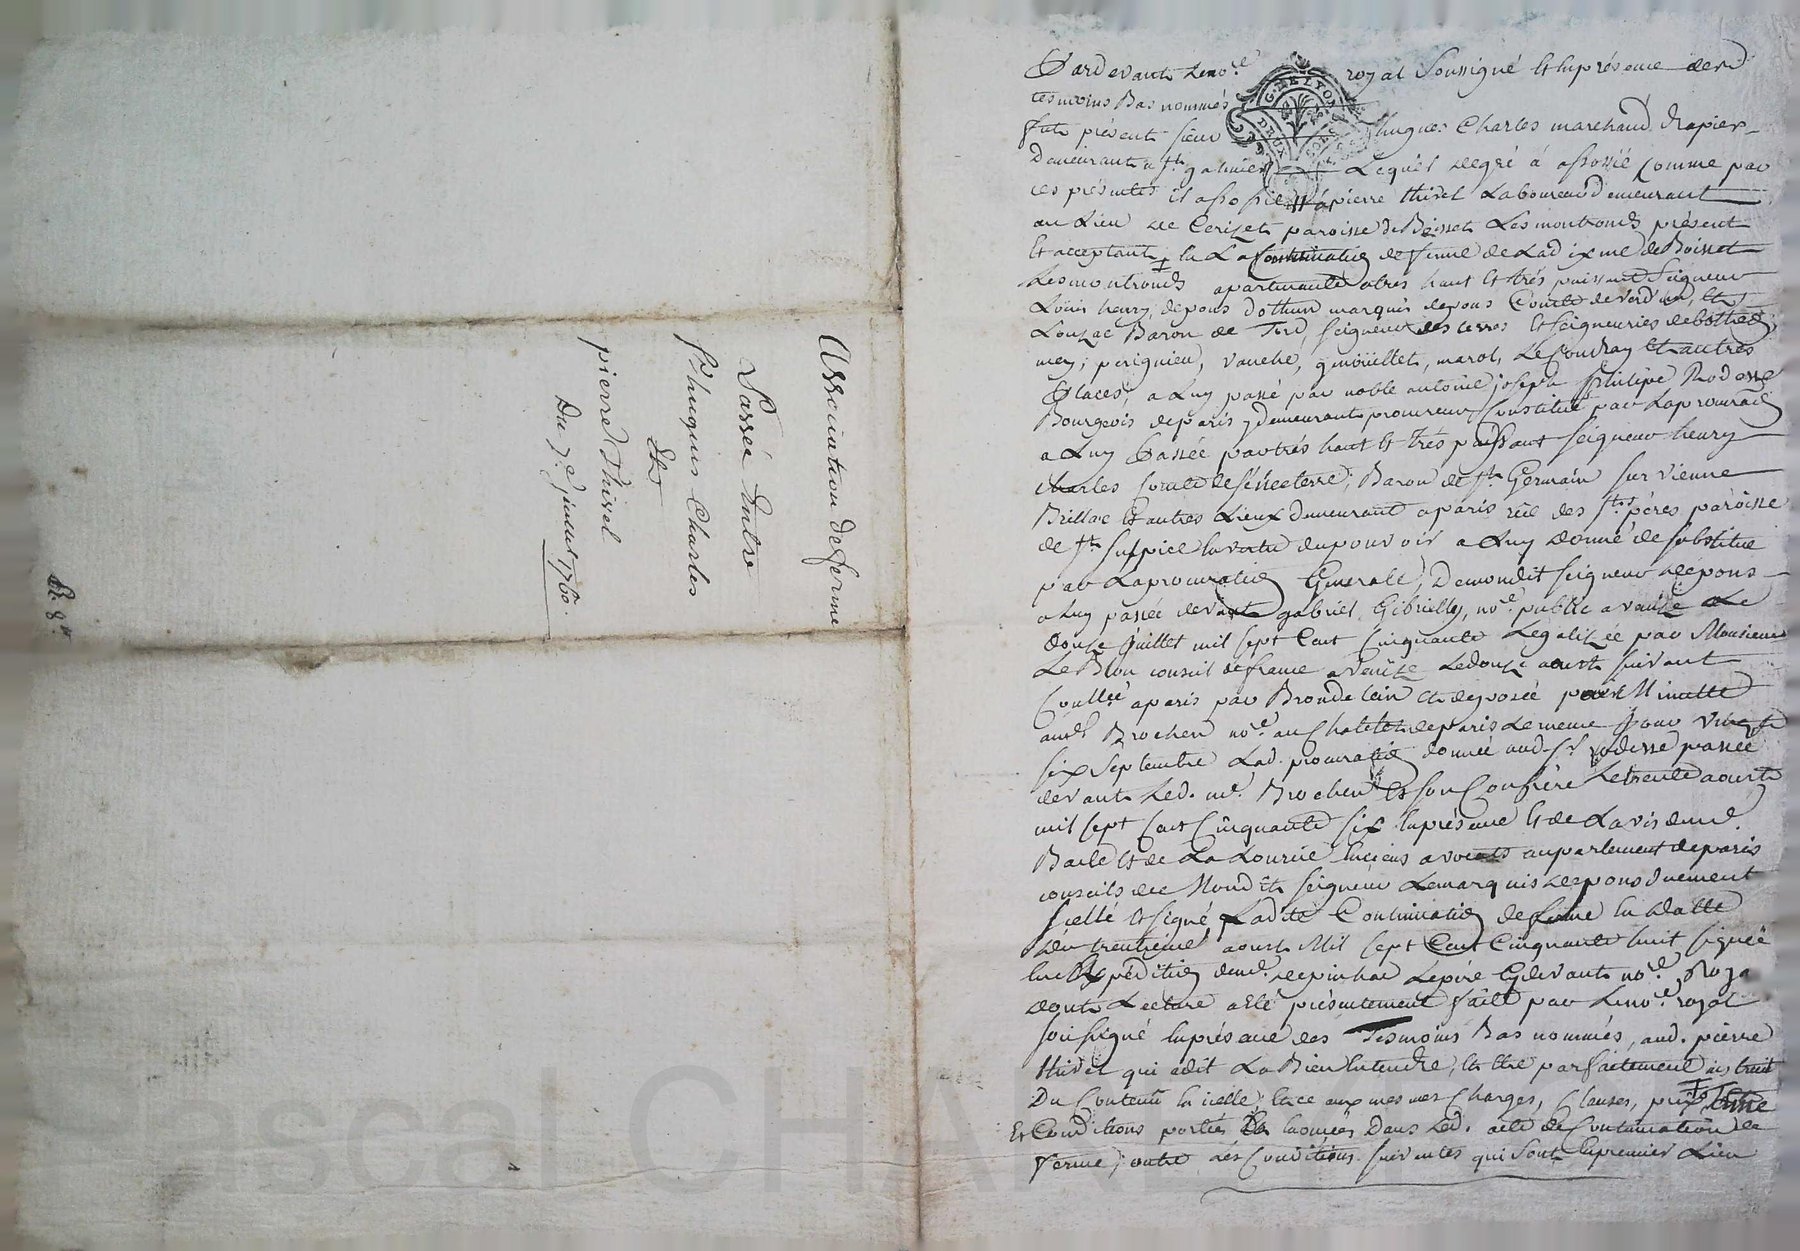 Association de ferme
Passée Entre
Sr hugues Charles
Et
pierre Thivel
Du 7e juillet 1760.
G. DE LYON
DEUX
Pardevant Le nore royal Soussigné Et en présence des
tesmoins Bas nommés
fut présent sieur hugues Charles marchand drapier
Demeurant a St galmier Lequel de gré á assossié Comme par
ces présentes il assossie pierre thivel Laboureur demeurant
au Lieu de Cerizet paroisse de Boisset Les montronds présent
Et acceptant en La Continuation de ferme de La dixme de Boisset
Les montronds apartenante a tres haut Et trés puissant Seigneur
Louis henry de pons d'othun marquis de pons Comte de verdun, Et
Louzac Baron de Tord, Seigneur des terres Et seigneuries de
mey, perignieu, vauche, genoüillet, marol, Le Coudray Et autres
Places, a Luy passé par noble antoine joseph philipe Rodesse
Bourgeois de paris y demeurant procureur Constitué par La procuration
a Luy Passée par trés haut Et trés puissant seigneur henry
charles Comte de séneeterre, Baron de St Germain sur vienne
Brillac Et autres Lieux demeurant a paris rüe des Sts péres paroisse
de St sulpice En vertu du pouvoir a Luy donné de substituer
par La procuration Generalle, De mondit seigneur de pons
a Luy passée devant gabriel Gibrielly, nore public a venize Le
douze juillet mil sept Cent Cinquante Legalizée par Monsieur
Le Blon consul de france a venize Le douze aoust suivant
Conllée a paris par Brondelein Et deposée pour Minutte
aud. Brochen nore au Chatelet de paris Le meme jour vingt
six septembre Lad. procuration donnée aud. sr rodesse passée
devant Led. me Brochen Et son Confrére Le trente aoust
mil sept Cent Cinquante six En présence Et de L avis de me
Baile Et de La Lourcé Enciens avocats au parlement de paris
conseils de Mondit seigneur Le marquis de pons duement
sçellé Et signé, Ladite Continuation de ferme En datte
du trentieme aoust Mil sept Cent Cinquante huit signée
En Expédition de me depinhac Le pére Cy devant nore Roya
dont Lecture a Eté présentement faite par Le nore royal
soussigné En présence des Tesmoins Bas nommés, aud. pierre
thivel qui a dit La Bien Entendre, Et Etre parfaitement instruit
Du Contenu En icelle, Et ce aux mesmes Charges, Clauses, prix
Et Conditions portées Et Enoncées Dans Led. acte de Continuation de
ferme, outre Les Conditions suivantes qui sont En premier Lieu
Pascal CHAN